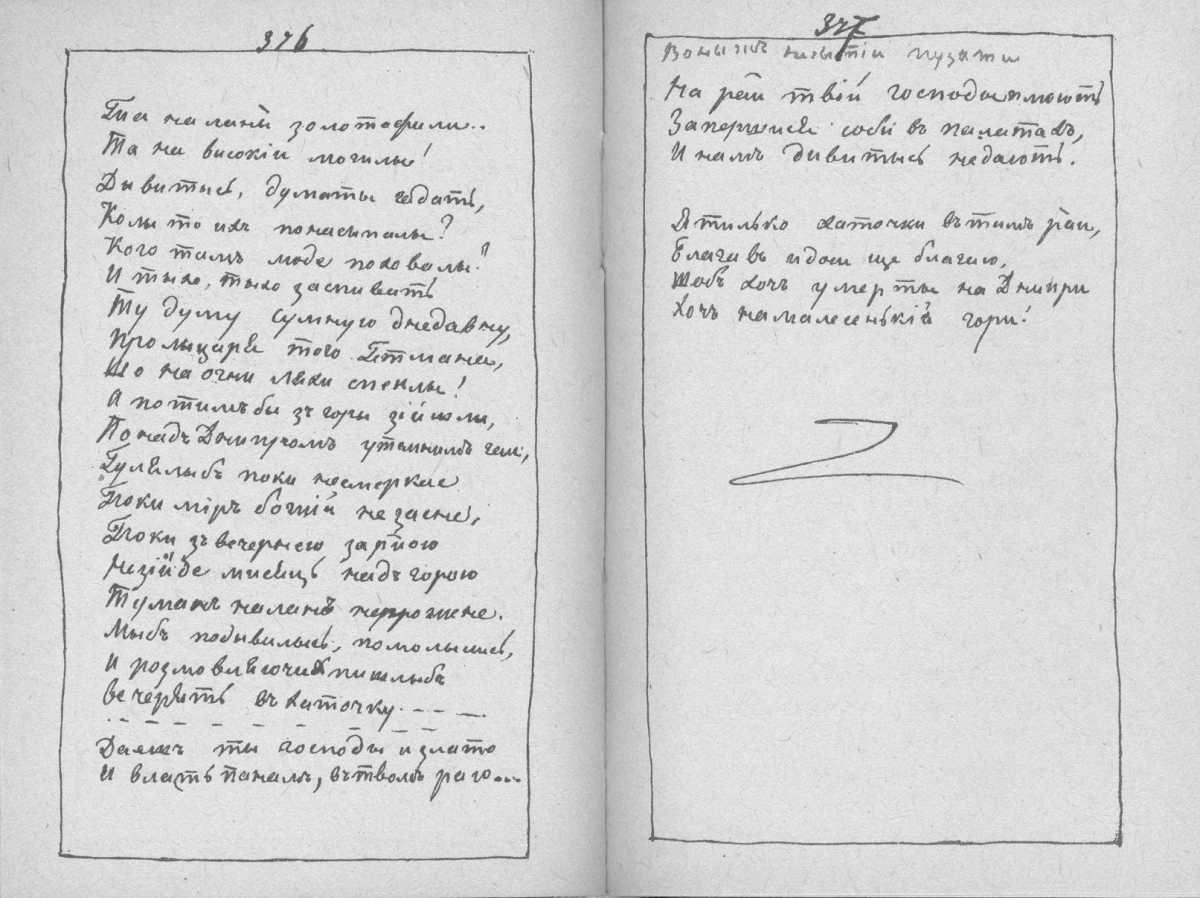 376
Та на лани золотофили..
Та на високіи могилы!
Дывитысь, думаты гадать,
Колы то ихъ понасыпалы?
Кого тамъ люде поховалы?
И тыхо, тыхо заспивать
Ту думу сумную днедавну,
Про лыцаря того Гетмана,
Що на огни ляхи спеклы!
А потимъ бы зъ горы зійшли,
Понадъ Днипромъ утемнимъ гаи,
Гулялыбъ поки несмеркае
Поки міръ божій не засне,
Поки зъ вечернею зарёю
Незійде мисяць надъ горою
Туманъ наланъ непрожене.
Мыбъ подывилысь, помолылись,
И розмовляючи пишлыбъ
вечерять въ хаточку. - - —
Даешъ ты господы и злато
И власть панамъ, въ твомъ раю...
377
Воны жъ пузати
На рай твій господы плюють
Заперлися собі въ палатахъ,
И намъ дывитысь не дають.
Я тилько хаточки въ тимъ раи,
Благавъ и доси ще благаю,
Щобъ хочъ умерты на Днипри
Хочъ намалесенькій гори!